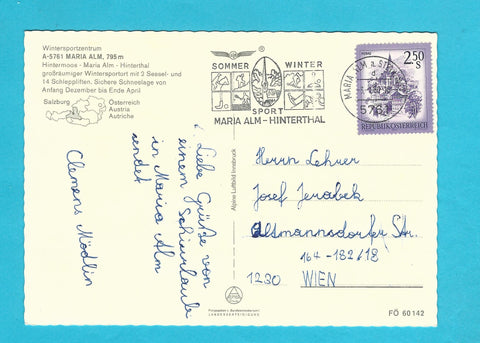 Wintersportzentrum
A-5761 MARIA ALM, 795 m
Hintermoos - Maria Alm - Hinterthal
großräumiger Wintersportort mit 2 Sessel- und
14 Schleppliften. Sichere Schneelage von
Anfang Dezember bis Ende April
Salzburg
Österreich
Austria
Autriche
SOMMER WINTER
SPORT
MARIA ALM - HINTERTHAL
MARIA ALM a. STEIN
5761
2.50 S
REPUBLIK ÖSTERREICH
Liebe Grüße von
einem Schiurlaub
in Maria Alm
sendet
Clemens Mödlin
Alpine Luftbild Innsbruck
Herrn Lehrer
Josef Jerabek
Altmannsdorfer Str.
164-182/18
1230 WIEN
FÖ 60142